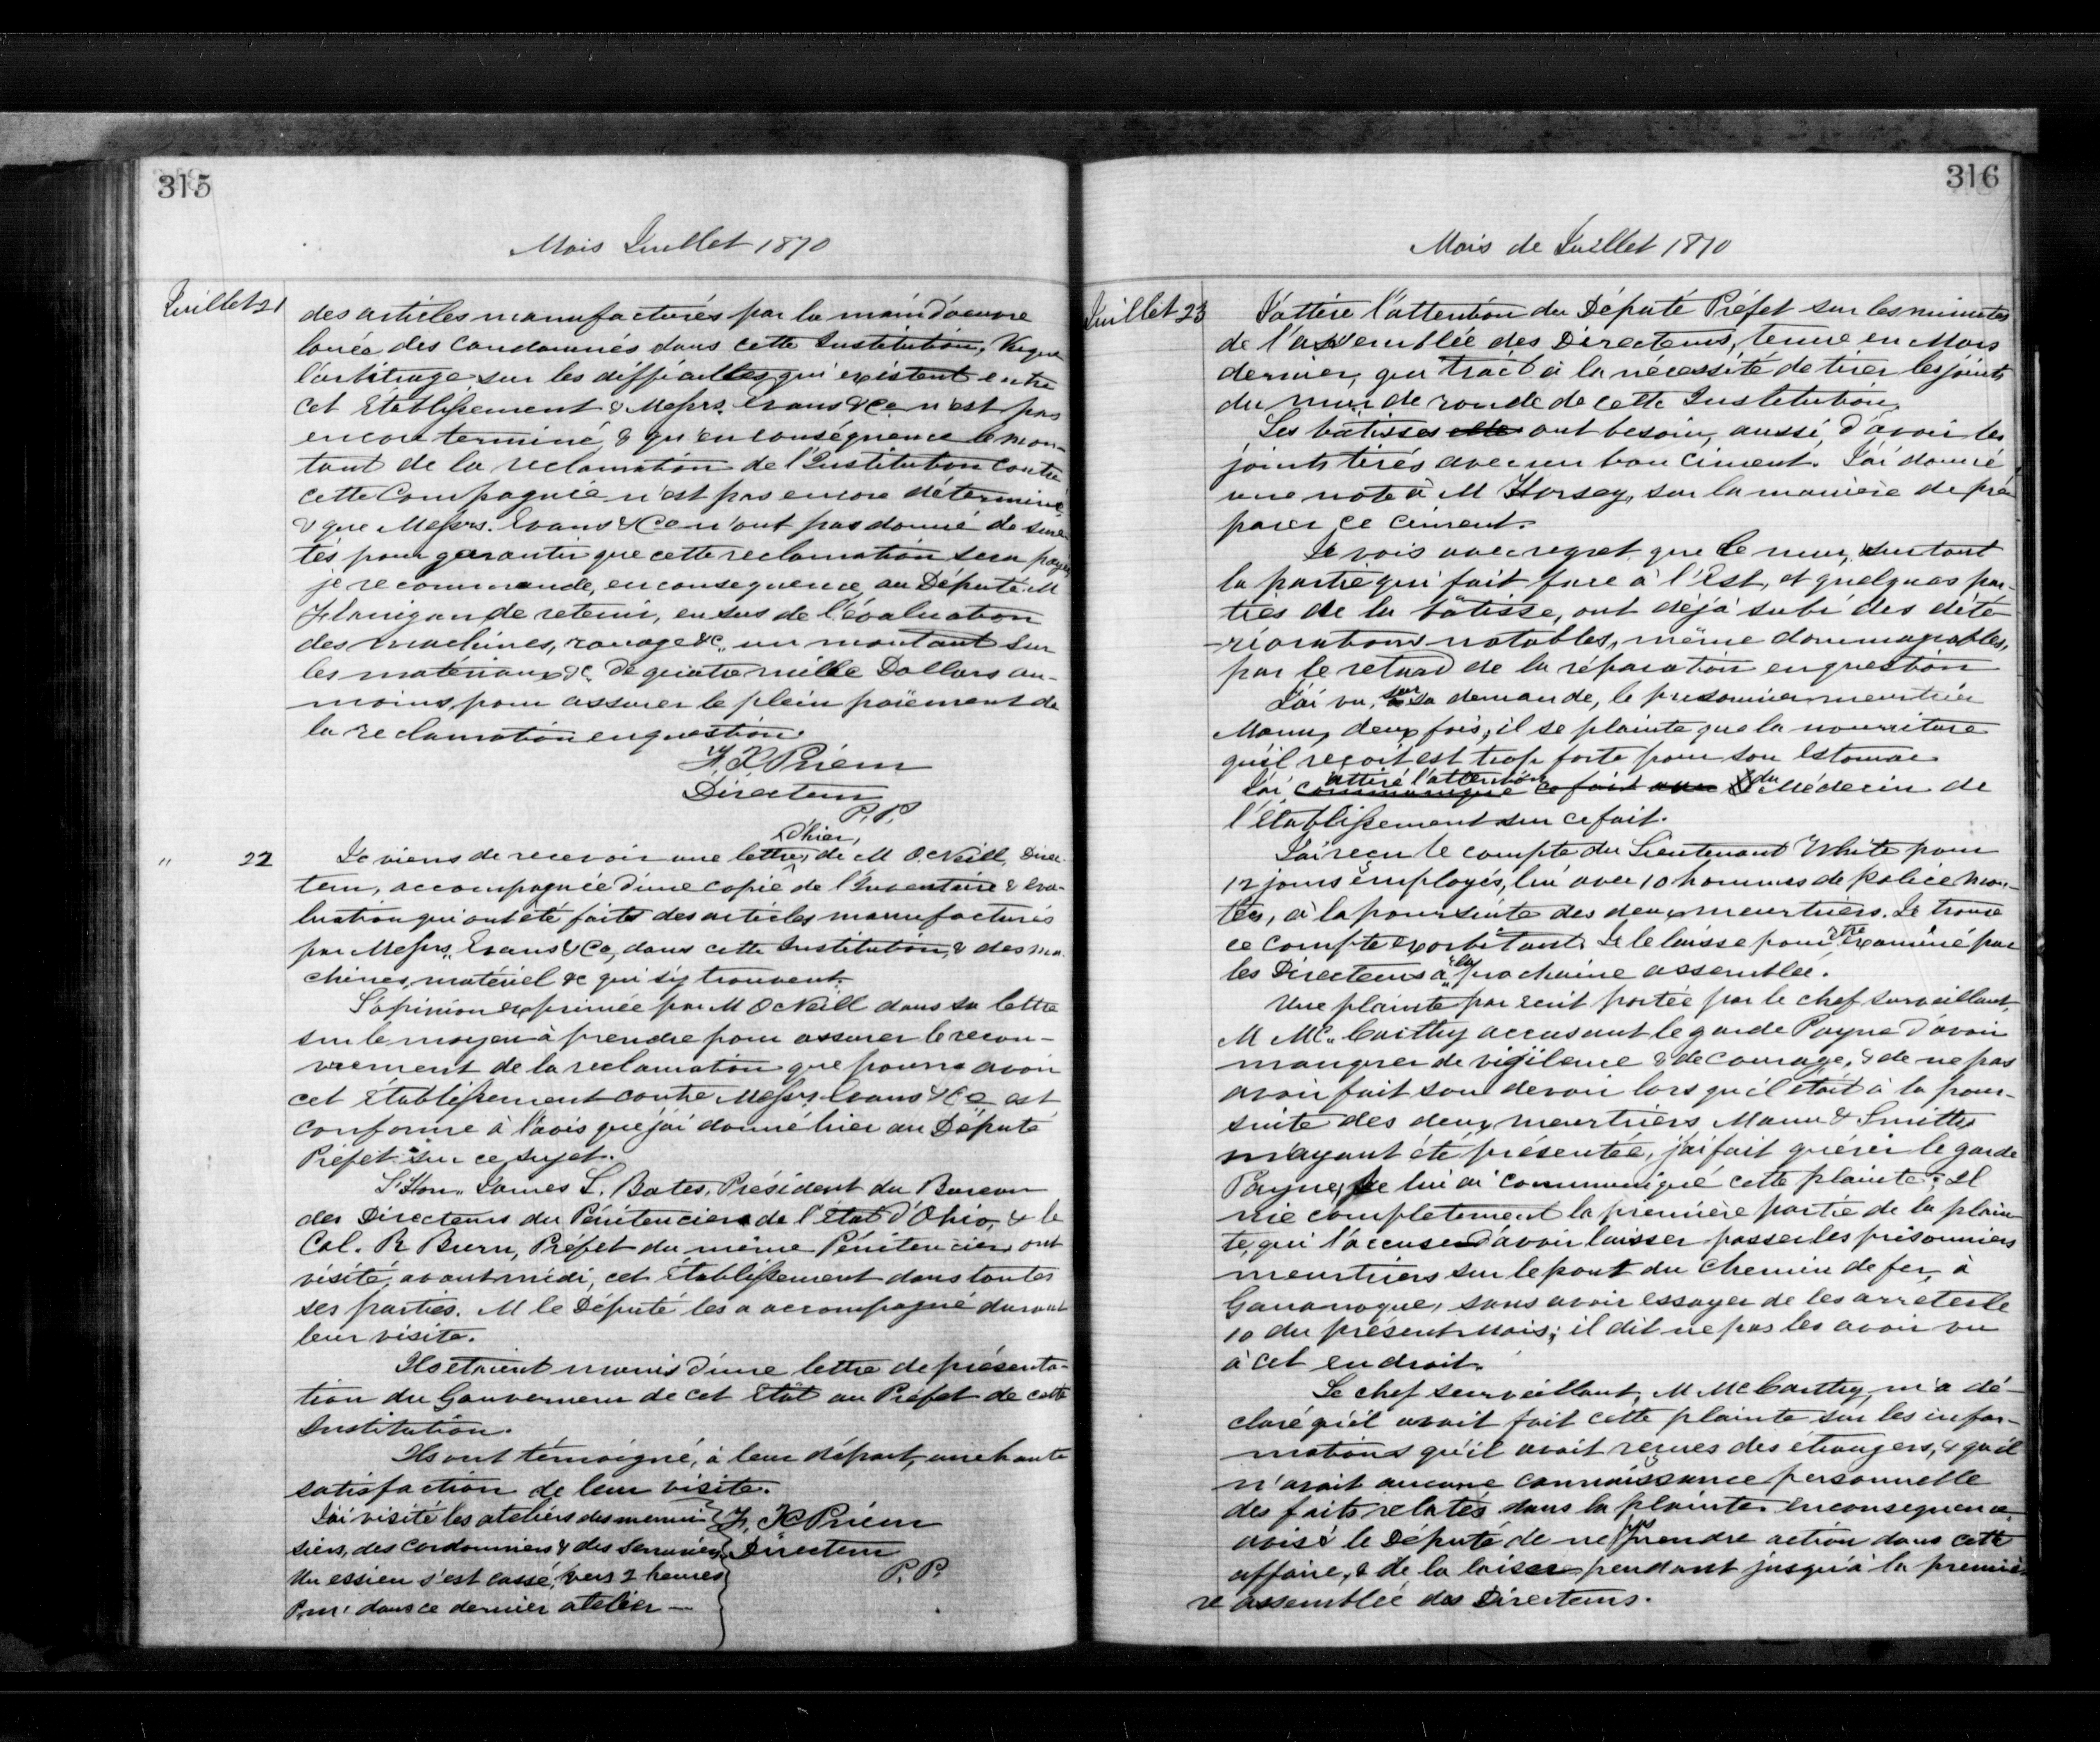 315
Mois Juillet 1870
Juillet 21
des articles manufacturés par la main d'œuvre
louée des condamnés dans cette Institution, Vu que
l'arbitrage sur les difficultes qui existent entre
cet Etablissement & Messrs. Evans & Co n'est pas
encore terminé & qu'en conséquence le mon-
tant de la reclamation de l'Institution contre
cette Compagnie n'est pas encore déterminé
& que Messrs. Evans & Co n'ont pas donné de sure-
tés pour garantir que cette reclamation sera payée,
je recommande, en consequence au Député M
Flanigan de retenir, en sus de l'évaluation
des machines, rouage &c, un montant sur
les matériaux &c, de quatre mille Dollars au-
moins, pour assurer le plein paiement de
la reclamation en question.
F. X Prieur
Directeur
P. P.
" 22
Je viens de recevoir une lettre, d'hier, de M O.Neill, Direc-
teur, accompagnée d'une copie de l'Inventaire & éva-
luation qui ont été faits des articles manufacturés
par Messrs. Evans & Co, dans cette Institution, & des ma-
chines, matériel &c qui s'y trouvent.
L'opinion exprimée par M O Neill dans sa lettre
sur le moyen à prendre pour assurer le recou-
vrement de la reclamation que pourra avoir
cet établissement contre Messrs. Evans & Co est
conforme à l'avis que j'ai donné hier au Député
Préfet sur ce sujet.
L'Hon. James L. Bates, Président du Bureau
des Directeurs du Pénitencier de l'État d'Ohio, & le
Col. R Burr, Préfet du même Pénitencier, ont
visité, avant midi, cet établissement dans toutes
ses parties. M le Député les a accompagné durant
leur visite.
Ils etaient munis d'une lettre de présenta-
tion du Gouverneur de cet État au Préfet de cette
Institution.
Ils ont témoigné, à leur départ, une haute
satisfaction de leur visite.
J'ai visité les ateliers des menui-
siers, des cordonniers & des Serruriers
Un essieu s'est cassé, vers 2 heures
P.m. dans ce dernier atelier —
F. X Prieur
Directeur
P. P.
316
Mois de Juillet 1870
Juillet 23
J'attire l'attention du Député Préfet sur les minutes
de l'assemblée des Directeurs, tenue en Mars
dernier, qui trait à la nécessité de tirer les joints
du mur de ronde de cette Institution.
Les bâtisses ont besoin, aussi, d'avoir les
joints tirés avec un bon ciment. J'ai donné
une note à M Horsey, sur la manière de pré-
parer ce ciment.
Je vois avec regret que le mur, surtout
la partie qui fait face à l'Est, et quelques par-
ties de la bâtisse, ont déjà subi des dété-
riorations notables, même dommageables,
par le retard de la réparation en question
J'ai vu, sur sa demande, le prisonnier meurtrier
Mann, deux fois; il se plainte que la nourriture
qu'il reçoit est trop forte pour son estomac
J'ai attiré l'attention communiqué ce fait du Médecin de
l'établissement sur ce fait.
J'ai reçu le compte du Lieutenant White pour
12 jours employés, lui avec 10 hommes de police mon-
tés, à la poursuite des deux meurtriers. Je trouve
ce compte exorbitant. Je le laisse pour être examiné par
les Directeurs à la prochaine assemblée.
Une plainte par ecrit portée par le chef surveillant,
M Mc.Carthy accusant le garde Payne d'avoir
manquer de vigilence & de courage, & de ne pas
avoir fait son devoir lorsqu'il était à la pour-
suite des deux meurtriers Mann & Smith
m'ayant été présentée, j'ai fait quérir le garde
Payne, Je lui ai communiqué cette plainte; Il
nie completement la première partie de la plain-
te, qui l'accuse d'avoir laisser passer les prisonniers
meurtriers sur le pont du chemin de fer, à
Gananoque, sans avoir essayer de les arreter le
10 du présent mois; il dit ne pas les avoir vu
à cet endroit.
Le chef surveillant, M McCarthy, m'a dé-
claré qu'il avait fait cette plainte sur les infor-
mations qu'il avait reçues des étrangers, & qu'il
n'avait aucune connaissance personnelle
des faits relatés dans la plainte. en consequence
avisé le Député de ne pas prendre action dans cette
affaire, & de la laisser pendant jusqu'à la premiè-
re assemblée des Directeurs.